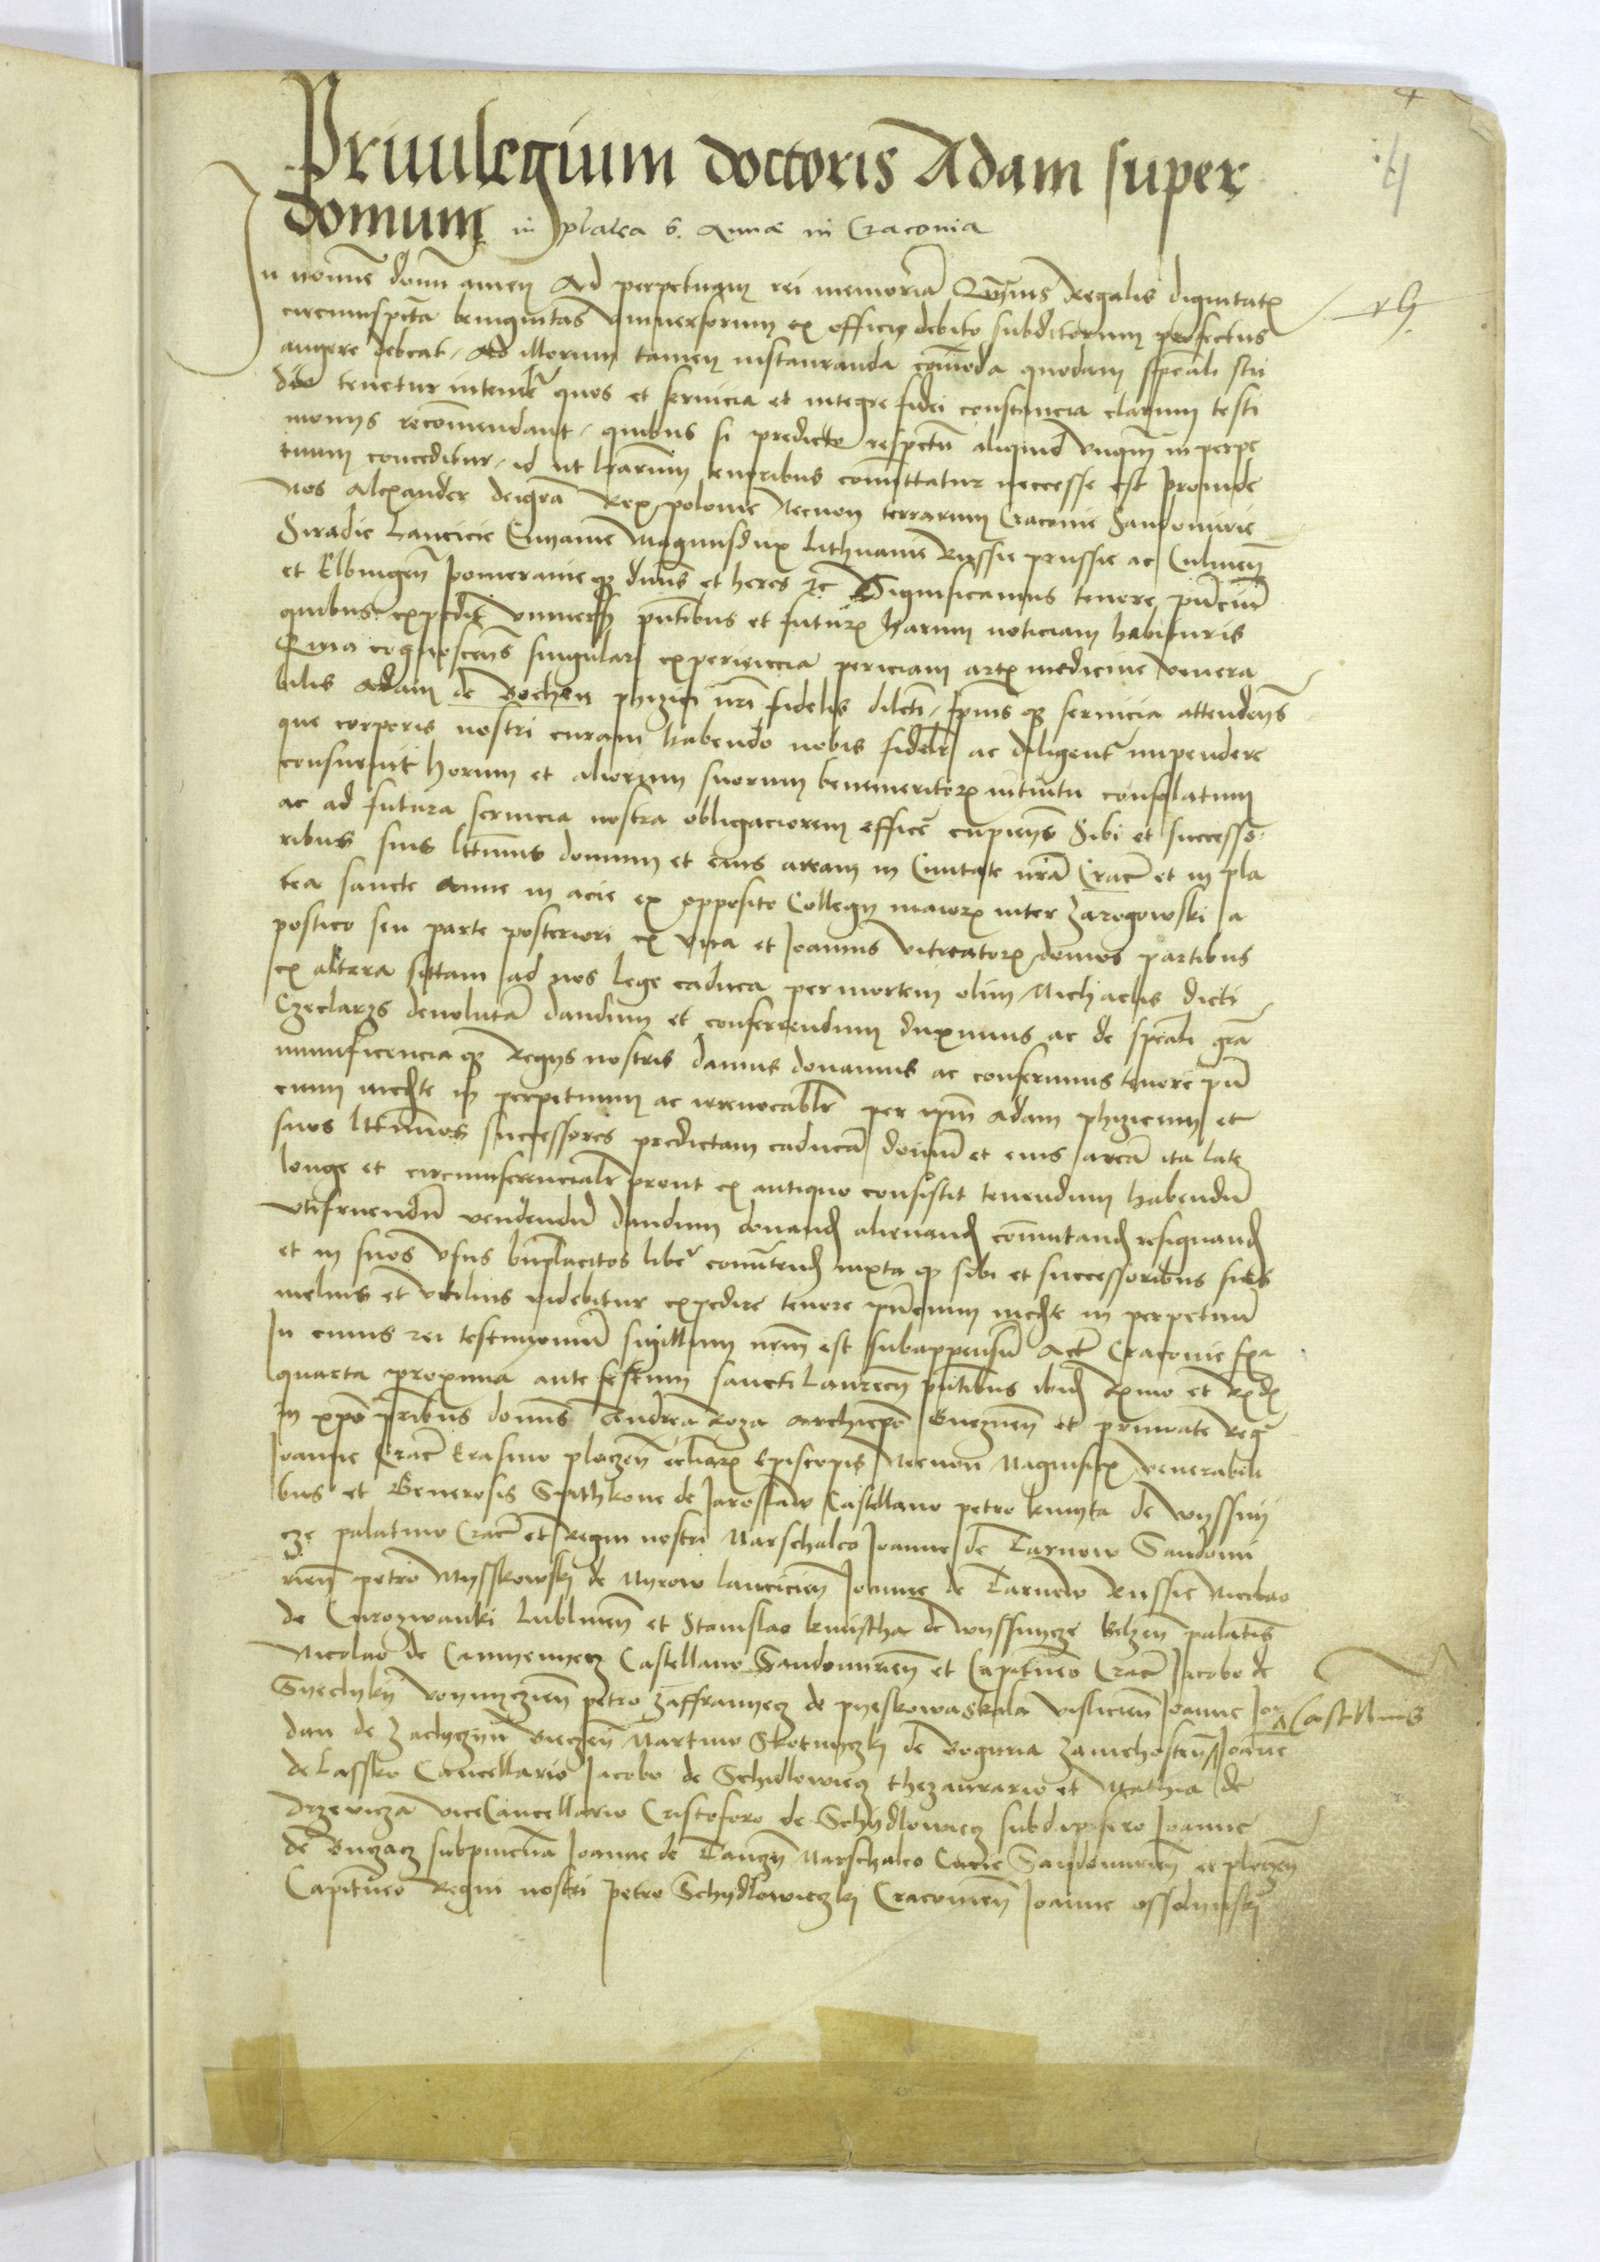 4
Priuilegium doctoris Adam super
domum in platea S. Annæ in Craconia
In nomine domini amen Ad perpetuam rei memoriã Quamuis Regalis dignitatis
circumspecta benignitas vniuersorum ex officij debito subditorum profectus
augere debeat. Ad illorum tamen instauranda comoda quodam speciali stu
dio tenetur intendere quos et seruicia et integre fidei constancia clarum testi
monijs recomendant. quibus si predicto respectu aliquid vnquam in perpe
tuum conceditur, id ut lrarum tenoribus comittatur neccesse est Proinde
Nos Alexander dei gra Rex polonie Necnon terrarum Cracouie Sandomirie
Siradie Lancicie Cuyauie Magnusdux Lithuanie Russie prussie ac Culmen
et Elbingen Pomeranieq3 dnus et heres etc Significamus tenore pncium
quibus expedit vniuersis pntibus et futuris harum noticiam habituris
Quia cognoscens singulari experiencia periciam artis medicine venera
bilis Adam de Bochen phizici nri fidelis dilecti, ipius q3 seruicia attendens
que corporis nostri curam habendo nobis fideliter ac diligenter impendere
consueuit horum et aliorum suorum benemeritorum intuitu consolatum
ac ad futura seruicia nostra obligaciorem efficere cupiens Sibi et successo
ribus suis lttimis domum et eius aream in Ciuitate nra Crac et in pla
tea sancte Anne in acie ex opposito Collegij maioris inter Zarogowski a
postico seu parte posteriori ex vna et Joannis vitreatoris domos partibus
ex altera sittam ad nos lege caduca per mortem olim Michaelis dicti
Czeclarzs deuoluta dandum et conferendum duximus ac de speciali gra
munificencia q3 Regijs nostris damus donamus ac conferimus tenore pn
cium mediante in perpetuum ac irreuocabiliter per ipm Adam phizicum et
suos lttimos successores predictam caduca domu et eius area ita late
longe et circumferencialiter prout ex antiquo consistit tenendum habendu
vtifruendu vendendu dandum donand alienand comutand resignand
et in suos vsus bnplacitos libere conuertend iuxta q3 sibi et successoribus suis
melius et vtilius videbitur expedire tenore pncium mediante in perpetuu
In cuius rei testimoniu sigillum nrm est subappensu Act Cracouie fria
quarta proxima ante festum sancti Laurencij pntibus ibid Rmo et Rdis
in xpo pribus dominis Andrea Roza Archiepo Gneznen et primate Reg
Joanne Crac Erasmo ploczen ecliarum Episcopis Necnon Magnificis venerabili
bus et Generosis Spithkone de Jaroslaw Castellano petro kmyta de wyssnij
cze palatino Crac et Regni nostri Marschalco Joanne de Tarnow Sandomi
rien petro Mysskowskj de Myrow lancicien Joanne de Tarnow Russie Nicolao
de Curozwanki Lublinen et Stanislao kmijtha de wyssnycze Belzen palatis
Nicolao de Camyenyecz Castellano Sandomirien et Capitneo Crac Jacobo de
Syechky Voynyczien petro Zaffranyecz de pyeskowaskala vislicien Joanne Jor
dan de Zaclyczyn Bieczen Martino Skotnyczki de Boguria Zawichosten Joanne
Castellnis
de Lassko Cancellario Jacobo de Schidlowiecz thezaurario et Mathia de
Drzewicza viceCancellario Cristoforo de Schydlowiecz subdapifero Joanne
de Buczacz subpincena Joanne de Tanczyn Marschalco Curie Sandomirien et ploczen
Capitneo Regni nostri Petro Schydlowieczki Cracouien Joanne ossolynski